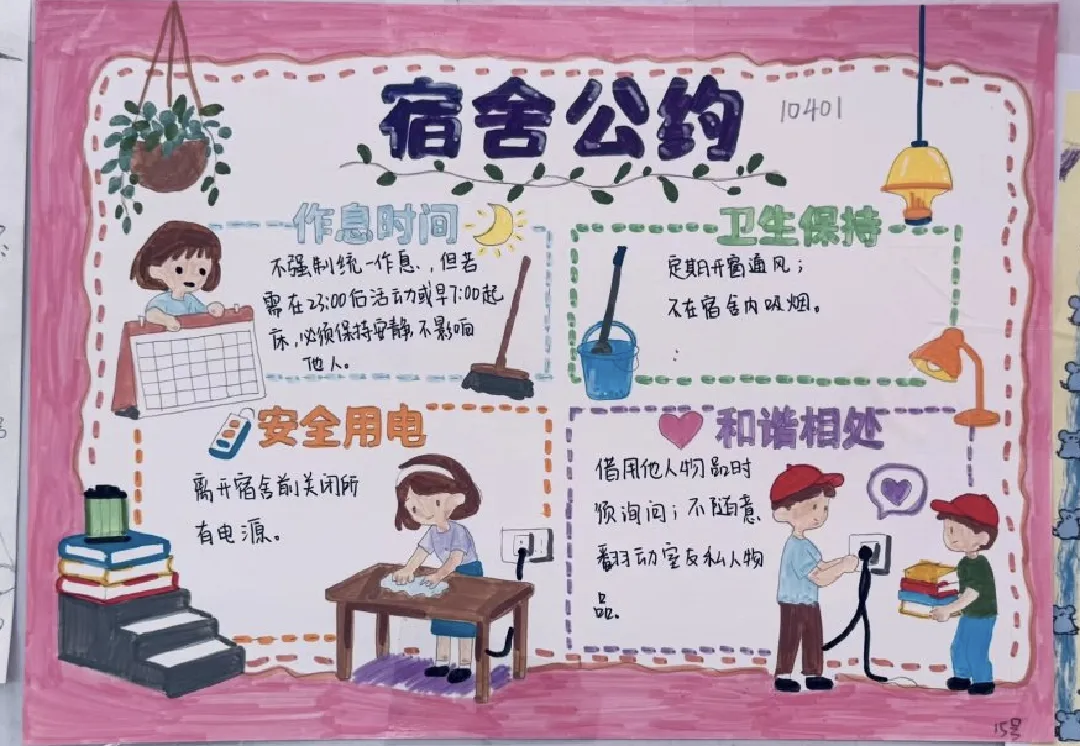 宿舍公约
10401
作息时间
不强制统一作息,但若
需在23:00后活动或早7:00起
床,必须保持安静不影响
他人。
卫生保持
定期开窗通风;
不在宿舍内吸烟。
安全用电
离开宿舍前关闭所
有电源。
和谐相处
借用他人物品时
须询问;不随意
翻动室友私人物
品。
15号